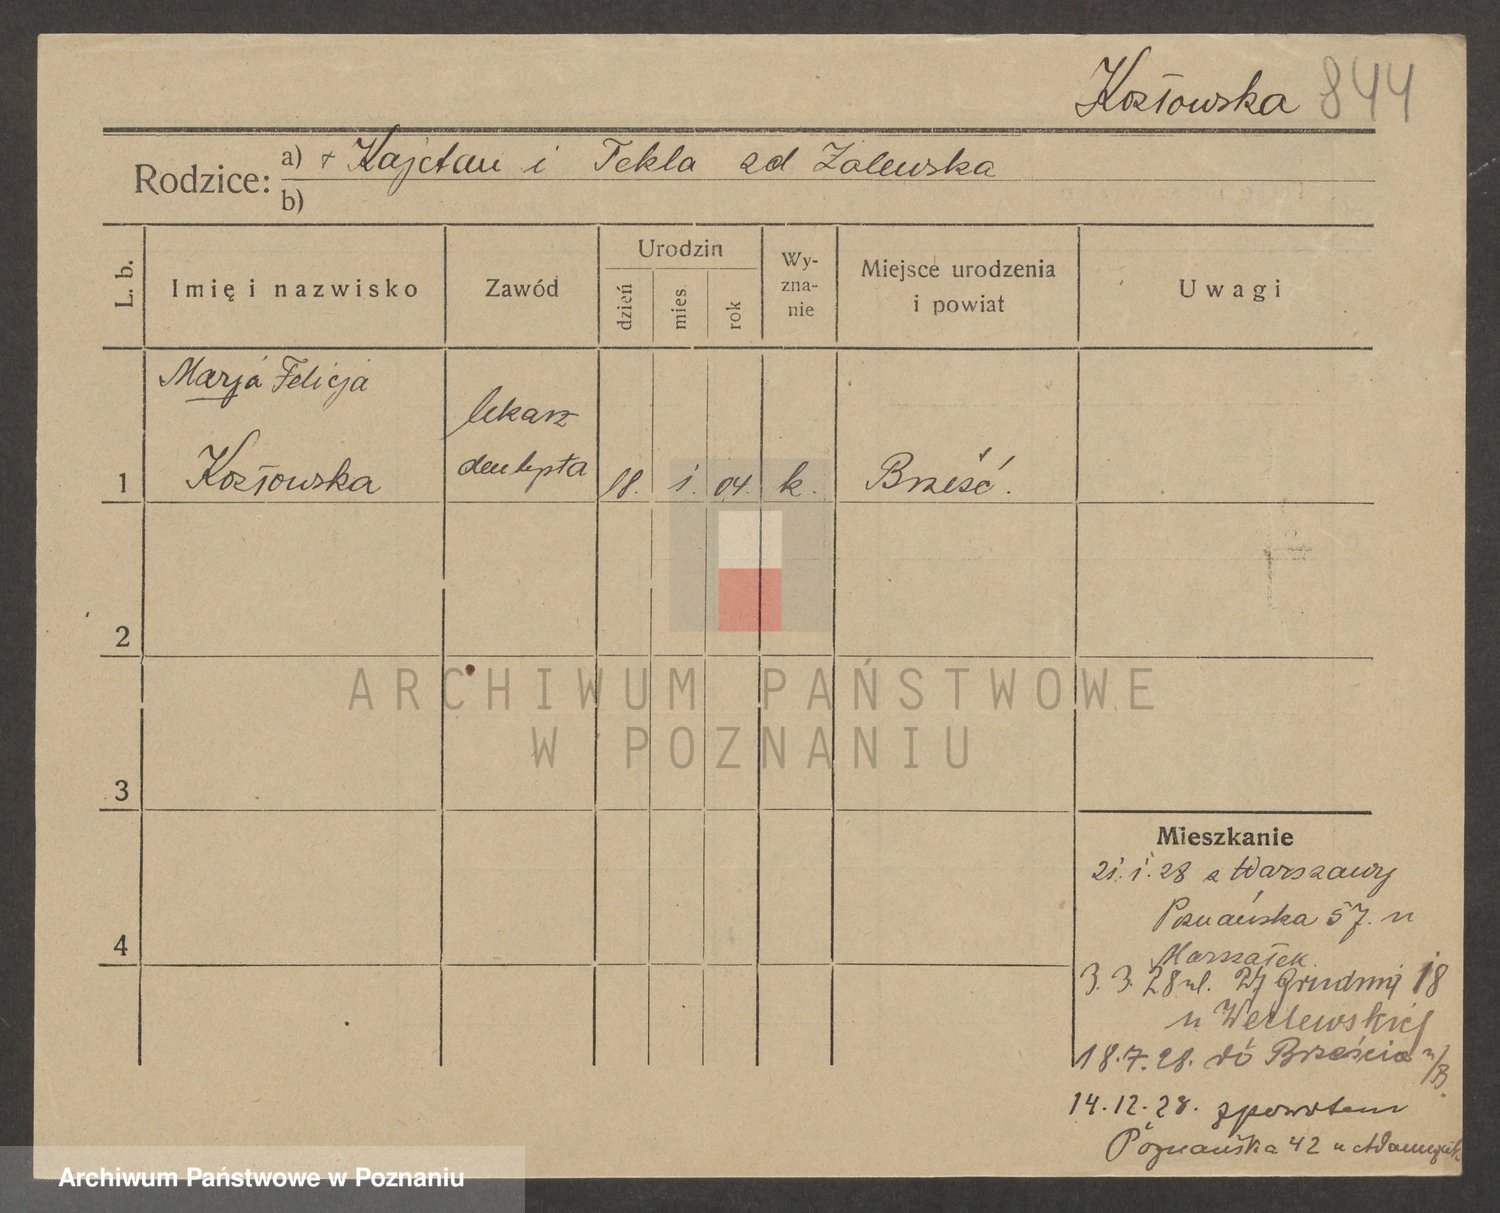 Kozłowska 844
Rodzice: a) + Kajetan i Tekla zd Zalewska
b)
L. b.
Imię i nazwisko
Zawód
Urodzin
dzień
mies.
rok
Wy-
zna-
nie
Miejsce urodzenia
i powiat
Uwagi
Marja Felicja
Kozłowska
lekarz
dentysta
1
18. 1. 04. k. Brześć.
2
ARCHIWUM PAŃSTWOWE
W POZNANIU
3
4
Mieszkanie
21.1.28 z Warszawy
Poznańska 57. u
Marszałek.
3.3.28 ul. 27 Grudnia 18
u Weclewskiej
18.7.28. do Brześcia n/B.
14.12.28. zpowrotem
Poznańska 42 u
Archiwum Państwowe w Poznaniu